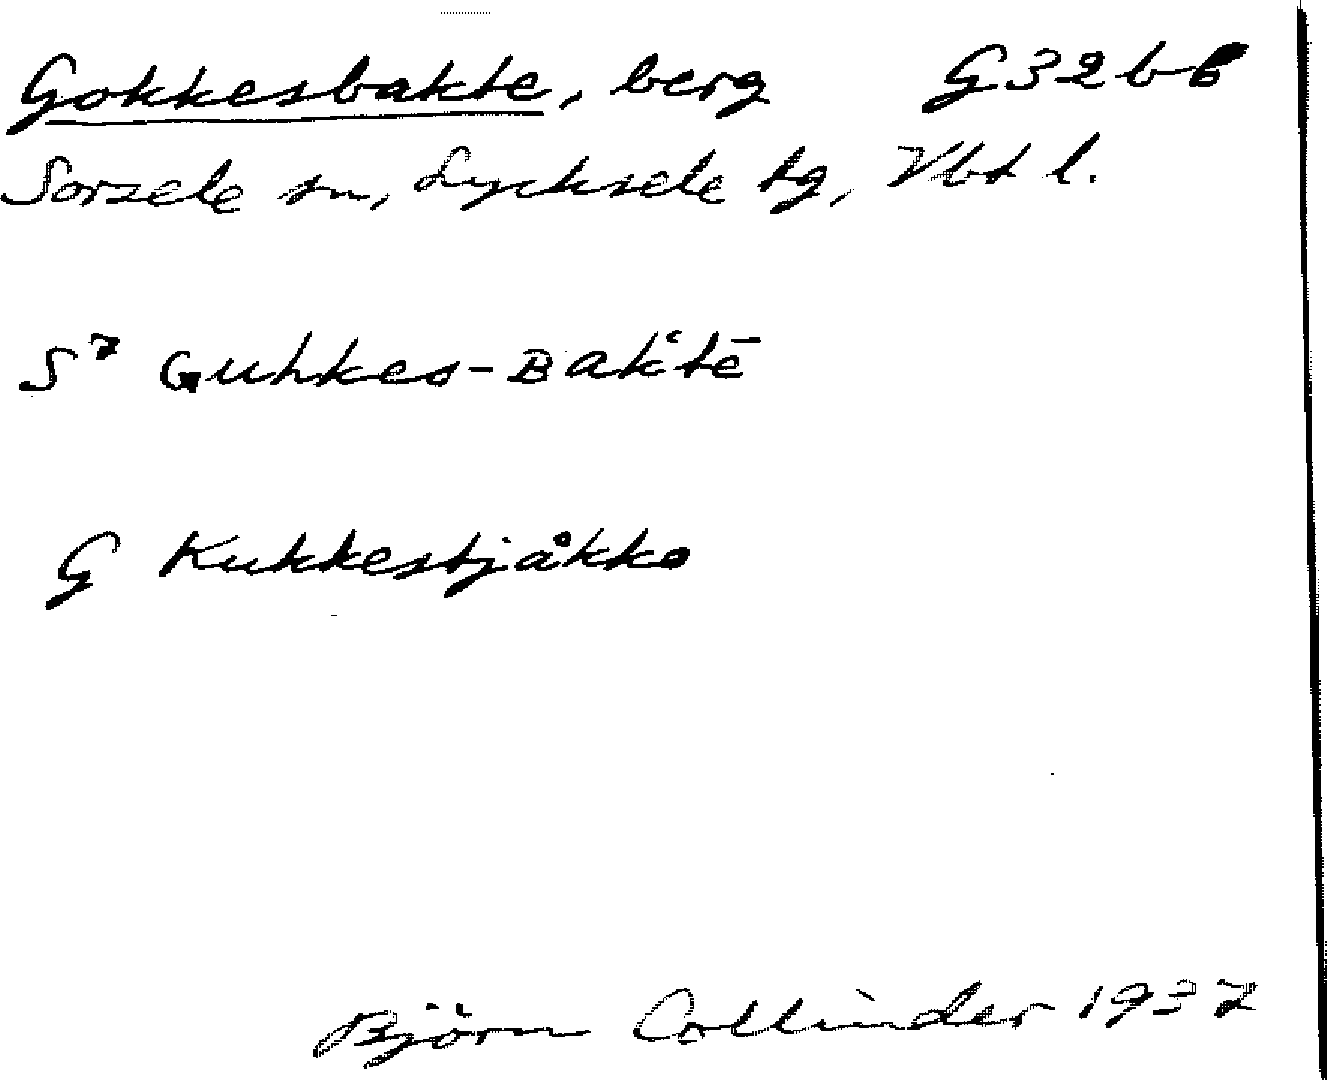 Gokkesbakte, berg G32bb
Sorsele sn, Lycksele tg, Vbt l.
S⁷ Guhkes-Bak'tē
G Kukkestjåkko
Björn Collinder 1937